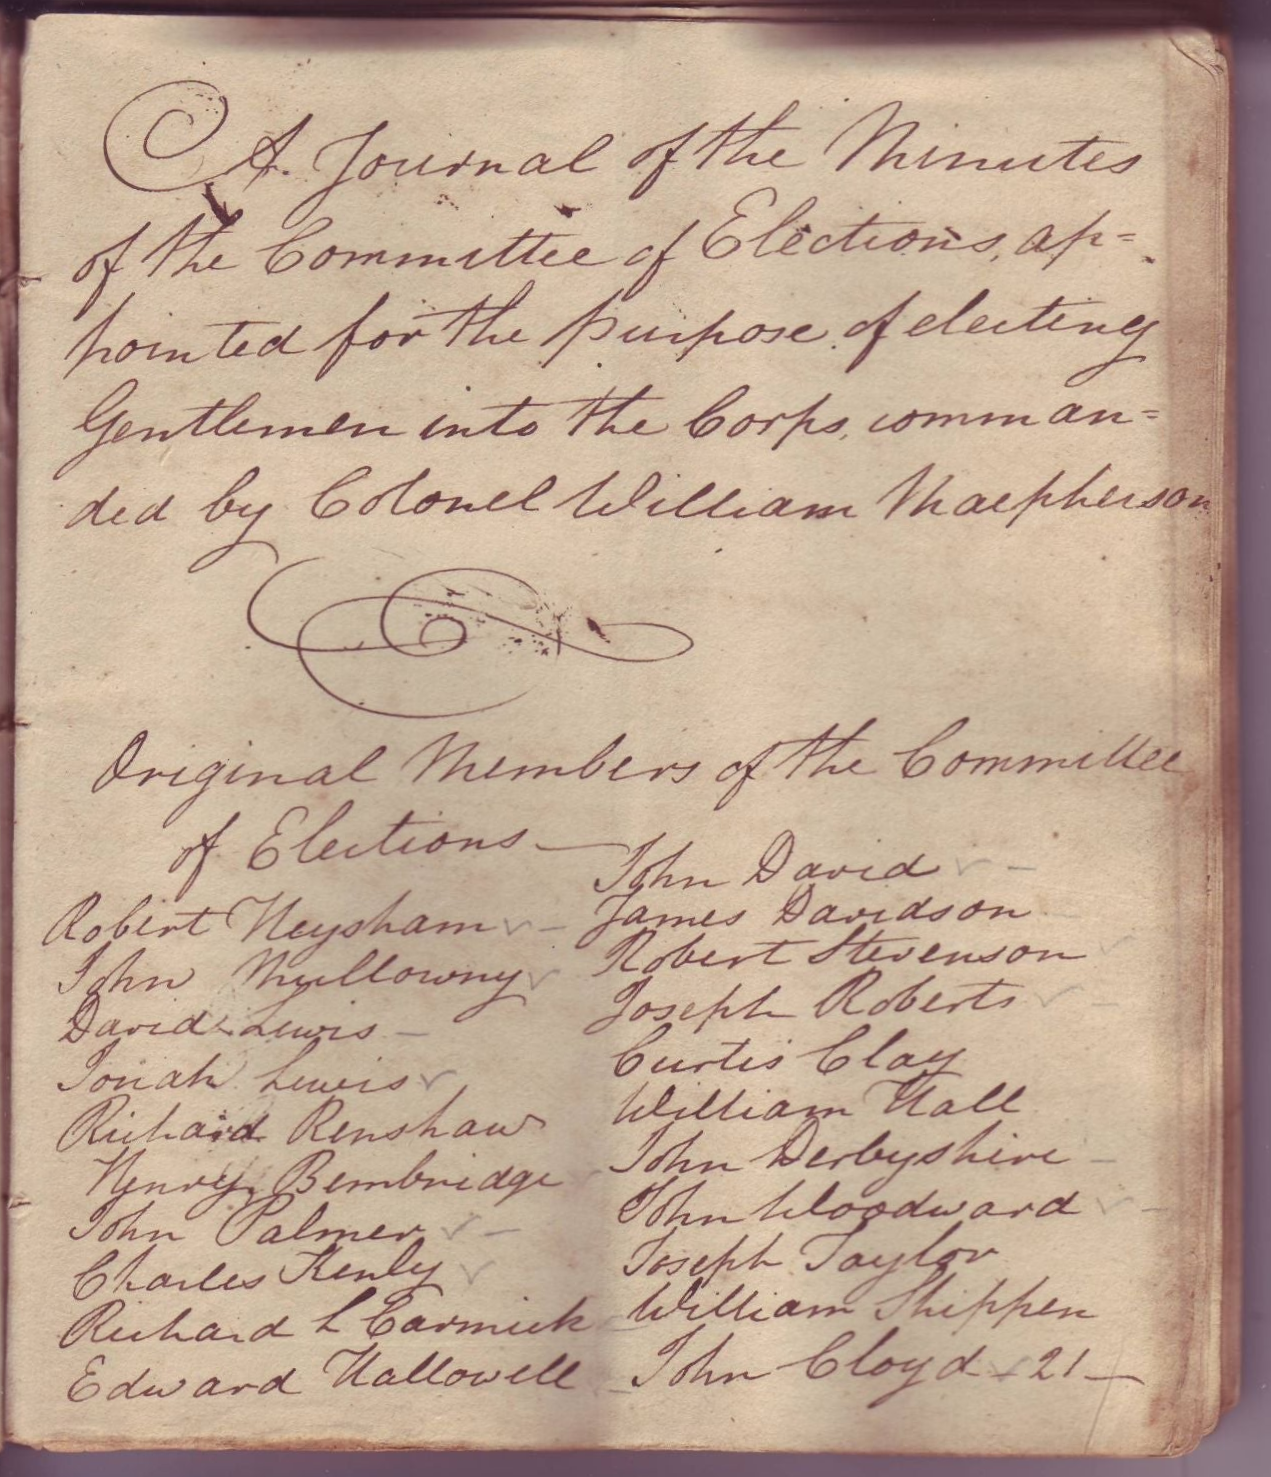 A Journal of the Minutes
of the Committee of Elections, ap=
pointed for the purpose of electing
Gentlemen into the Corps, comman=
ded by Colonel William Macpherson
Original Members of the Committee
of Elections—
Robert Heysham -
John Mullowny
David Lewis -
Jonah Lewis
Richard Renshaw
Henry Bembridge
John Palmer -
Charles Kenly
Richard L Carmick
Edward Hallowell
John David -
James Davidson
Robert Stevenson
Joseph Roberts -
Curtis Clay
William Hall
John Derbyshire -
John Woodward -
Joseph Taylor
William Shippen
John Cloyd - 21 —